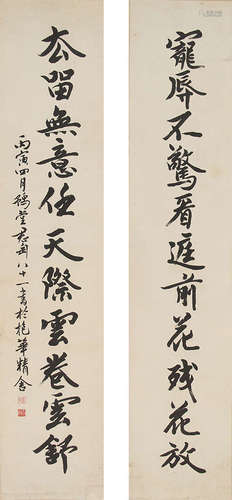 寵辱不驚看庭前花残花放
去留無意任天際雲卷雲舒
丙寅四月堂君八十一書於抱華精舍